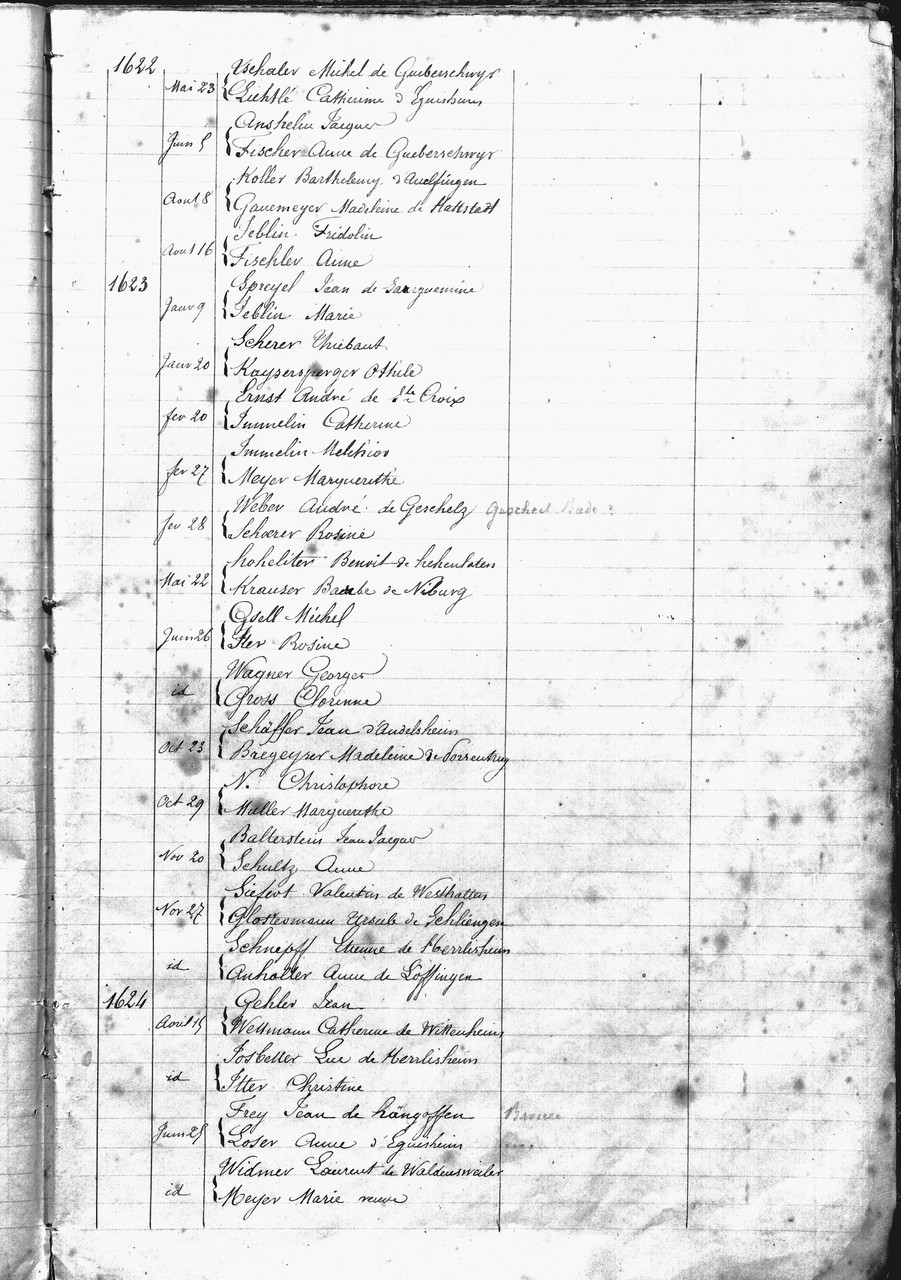 1622
Tschaler Michel de Gueberschwyr
Mai 23 Liechtlé Catherine d'Eguisheim
Anshelm Jacques
Juin 5 Fischer Anne de Gueberschwyr
Koller Barthelemy d'Auolfingen
Aout 8 Gauemeyer Madeleine de Hattstadt
Jeblin Fridolin
Aout 16 Fischler Anne
1623 Spreyel Jean de Sarguemine
Janv 9 Jeblin Marie
Scherer Thiebaut
Janv 20 Kaysersperger Othile
Ernst André de Ste Croix
fev 20 Immelin Catherine
Immelin Melchior
fev 27 Meyer Marguerethe
Weber André de Geschelz Bade ?
fev 28 Schœrer Rosine
Hoheliter Benoit de
Mai 22 Krauser Barbe de Niburg
Gsell Michel
Juin 26 Iter Rosine
Wagner Georges
id Gross Clorienne
Schäffer Jean d'Andelsheim
Oct 23 Bregeyser Madeleine de Porrentruy
N. Christophore
Oct 29 Muller Marguerethe
Balterstein Jean Jacques
Nov 20 Schultz Anne
Siefert Valentin de Westhalten
Nov 27 Ursule de Schliengen
Schnepff Etienne de Herrlisheim
id Anhalter Anne de Löffingen
1624 Gehler Jean
Avril 15 Wettmann Catherine de Wittenheim
Josbetter Luc de Herrlisheim
id Itter Christine
Frey Jean de Hängoffen
Juin 25 Loser Anne d'Eguisheim
Widmer Laurent de Waldensweiler
id Meyer Marie veuve